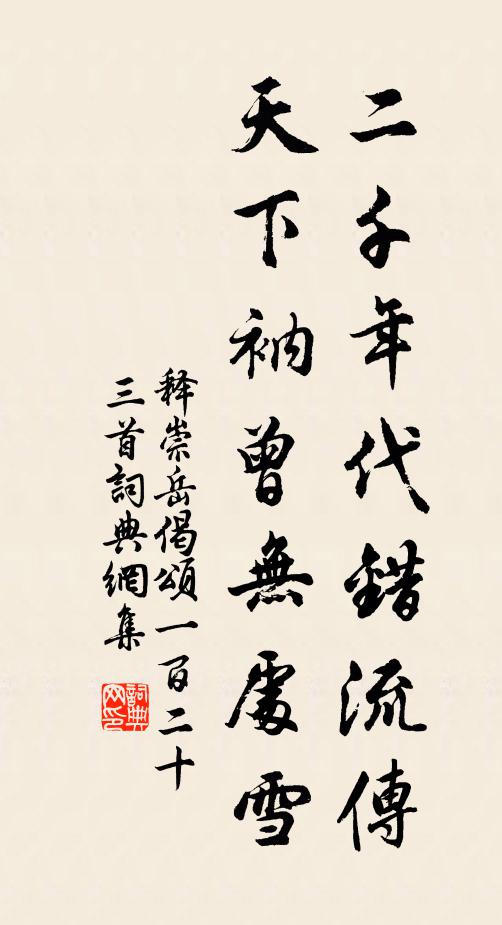 二千年代錯流傳
天下衲曾無處雪
释崇岳偈頌一百二十
三首詞典網集
詞典網印